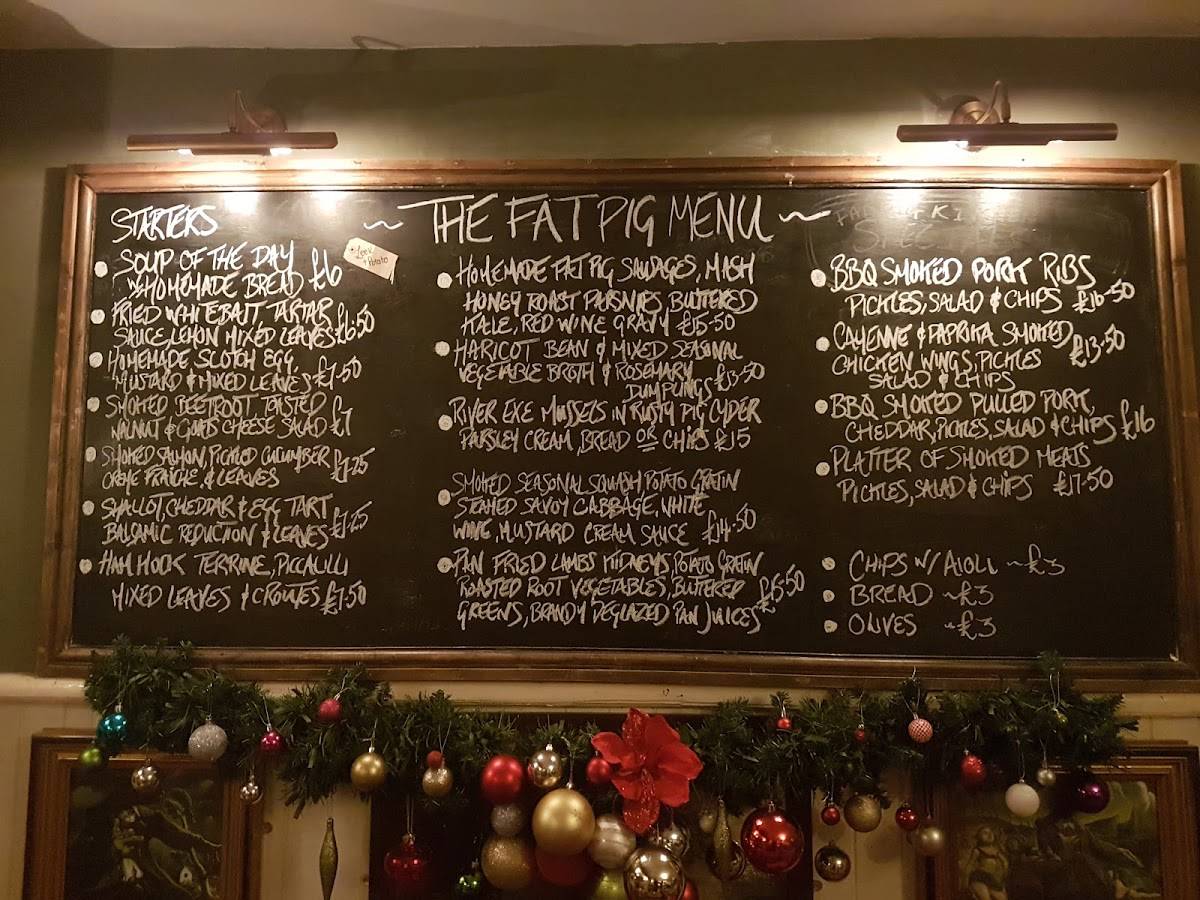 ~ THE FAT PIG MENU ~
STARTERS
SOUP OF THE DAY
W/ HOMEMADE BREAD £6
Leek
+ Potato
FRIED WHITEBAIT TARTAR
SAUCE, LEMON MIXED LEAVES £6.50
HOMEMADE SCOTCH EGG,
MUSTARD & MIXED LEAVES £7.50
SMOKED BEETROOT, TOASTED
WALNUT & GOATS CHEESE SALAD £7
SMOKED SALMON, PICKLED CUCUMBER
CREME FRAICHE, & LEAVES £7.25
SHALLOT, CHEDDAR & EGG TART
BALSAMIC REDUCTION & LEAVES £7.25
HAM HOCK TERRINE, PICCALILLI
MIXED LEAVES & CROUTES £7.50
HOMEMADE FAT PIG SAUSAGES, MASH
HONEY ROAST PARSNIPS, BUTTERED
KALE, RED WINE GRAVY £15.50
HARICOT BEAN & MIXED SEASONAL
VEGETABLE BROTH & ROSEMARY
DUMPLINGS £13.50
RIVER EXE MUSSELS IN RUSTY PIG CYDER
PARSLEY CREAM, BREAD OR CHIPS £15
SMOKED SEASONAL SQUASH POTATO GRATIN
STEAMED SAVOY CABBAGE, WHITE
WINE, MUSTARD CREAM SAUCE £14.50
PAN FRIED LAMBS KIDNEYS, POTATO GRATIN
ROASTED ROOT VEGETABLES, BUTTERED
GREENS, BRANDY DEGLAZED PAN JUICES £15.50
BBQ SMOKED PORK RIBS
PICKLES, SALAD & CHIPS £16.50
CAYENNE & PAPRIKA SMOKED
CHICKEN WINGS, PICKLES
SALAD & CHIPS £13.50
BBQ SMOKED PULLED PORK,
CHEDDAR, PICKLES, SALAD & CHIPS £16
PLATTER OF SMOKED MEATS
PICKLES, SALAD & CHIPS £17.50
CHIPS W/ AIOLI ~£3
BREAD ~£3
OLIVES ~£3